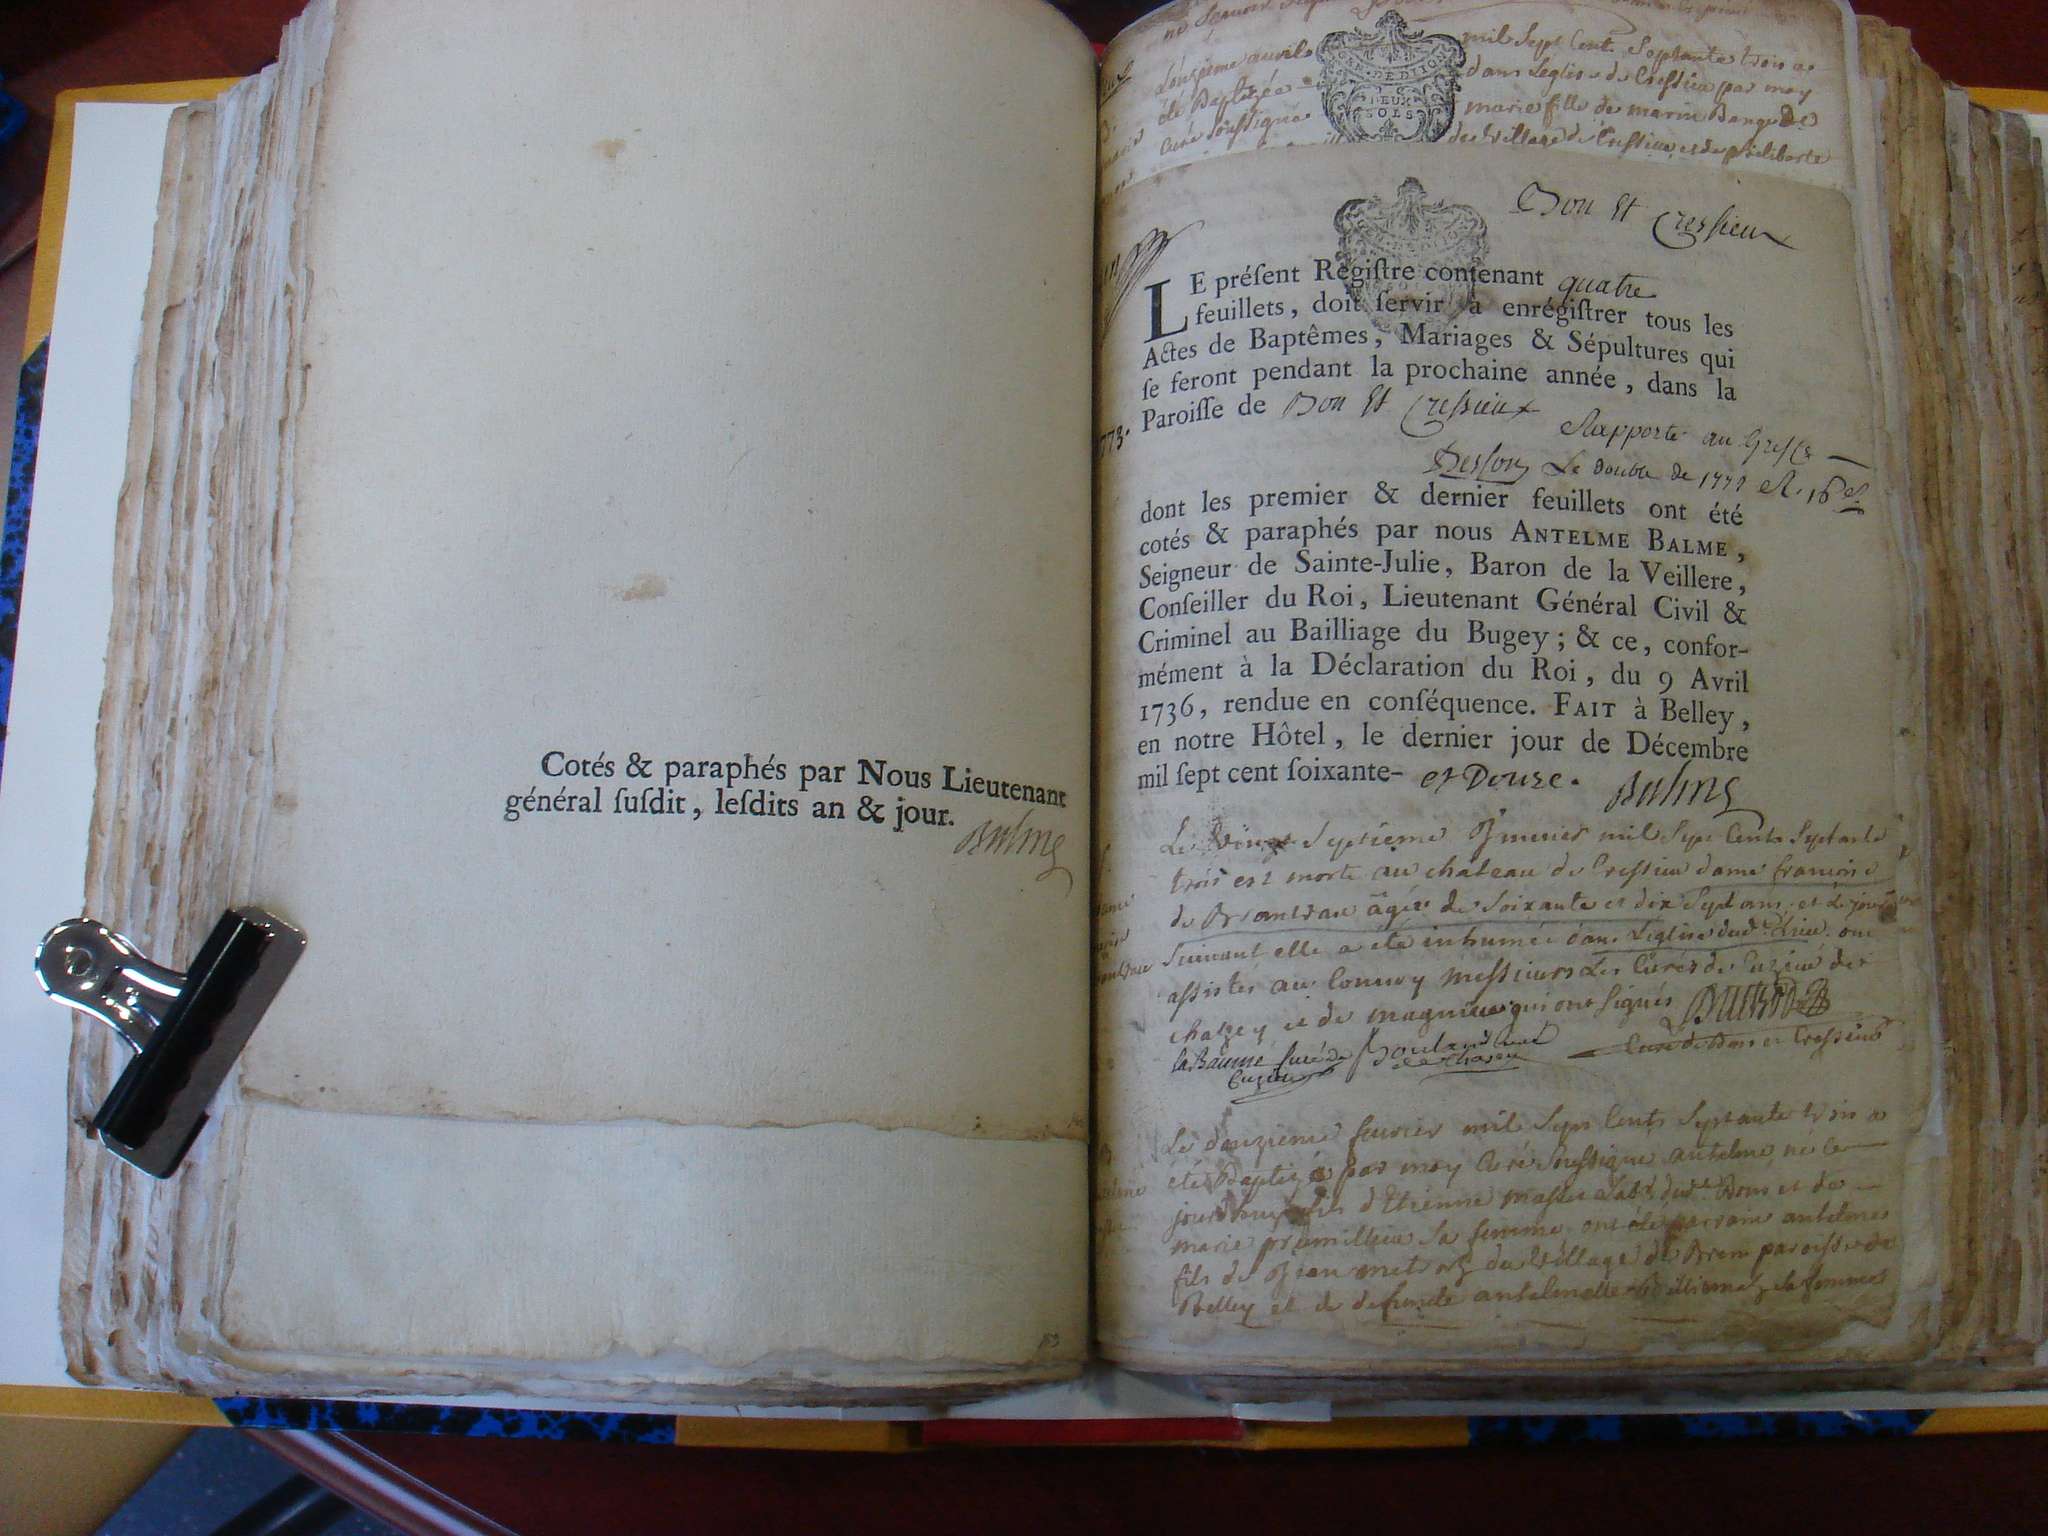 Cotés & paraphés par Nous Lieutenant
général ſuſdit, leſdits an & jour.
Balme
mil sept Cent Septante trois a
été Baptizée dans Leglise de Cressieu par moy
Curé soussigné marie fille de marin
du village de Cressieu et de philiberte
GEN. DEDITION
DEUX
SOLS
Bon Et Cressieux
LE préſent Regiſtre contenant quatre
feuillets, doit ſervir à enrégiſtrer tous les
Actes de Baptêmes, Mariages & Sépultures qui
ſe feront pendant la prochaine année, dans la
Paroiſſe de Bon Et Cressieux
Rapporté au Greffe
1773.
Le double de 1772
dont les premier & dernier feuillets ont été
cotés & paraphés par nous ANTELME BALME,
Seigneur de Sainte-Julie, Baron de la Veillere,
Conſeiller du Roi, Lieutenant Général Civil &
Criminel au Bailliage du Bugey; & ce, confor-
mément à la Déclaration du Roi, du 9 Avril
1736, rendue en conſéquence. FAIT à Belley,
en notre Hôtel, le dernier jour de Décembre
mil ſept cent ſoixante- et Douze. Balme
Le vingt Septieme Janvier mil Sept Cents Septante
trois est morte au chateau de Cressieu dame francoise
de agée de Soixante et dix Sept ans et Le jour
Suivant elle a été inhumée dans Leglise dud. Lieu ont
assistés au Convoy Messieurs Les Curés de Cuzieu de
chazey et de magnieu qui ont signés
la Baume Curé de Cuzieu
Curé de Bon et Cressieu
Le douzieme fevrier mil Sept Cents Septante trois a
été Baptizé par moy Curé Soussigné antelme né Ce
jourdhuy fils d'Etienne dud. Bon et de
marie sa femme ont été parrain antelme
fils de Jean du village de Brens paroisse de
Belley et de defunte antelmette sa femme